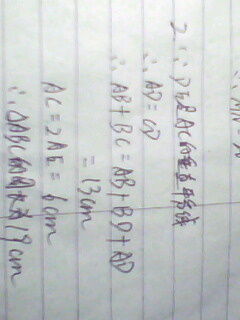 2. ∵ D是AC的垂直平分线
∴ AD = CD
∴ AB + BC = AB + BD + AD
= 13cm
AC = 2AE = 6cm
∴ △ABC的周长为19cm